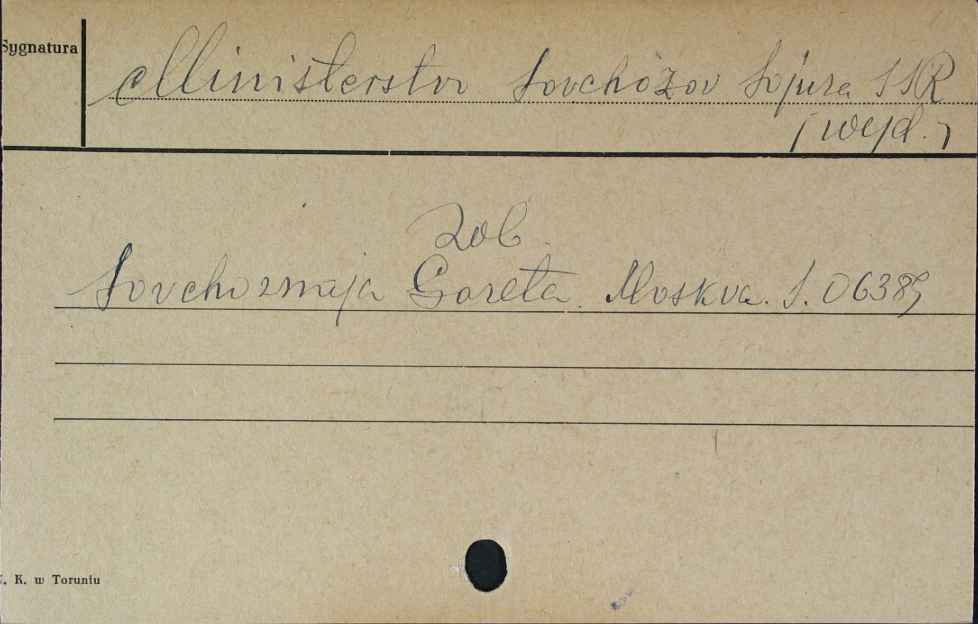 Sygnatura
Ministerstvo Sovchózov Sojuza SSR
(wyd.)
Zob.
Sovchoznaja Gazeta. Moskva. S. 06389
. K. w Toruniu